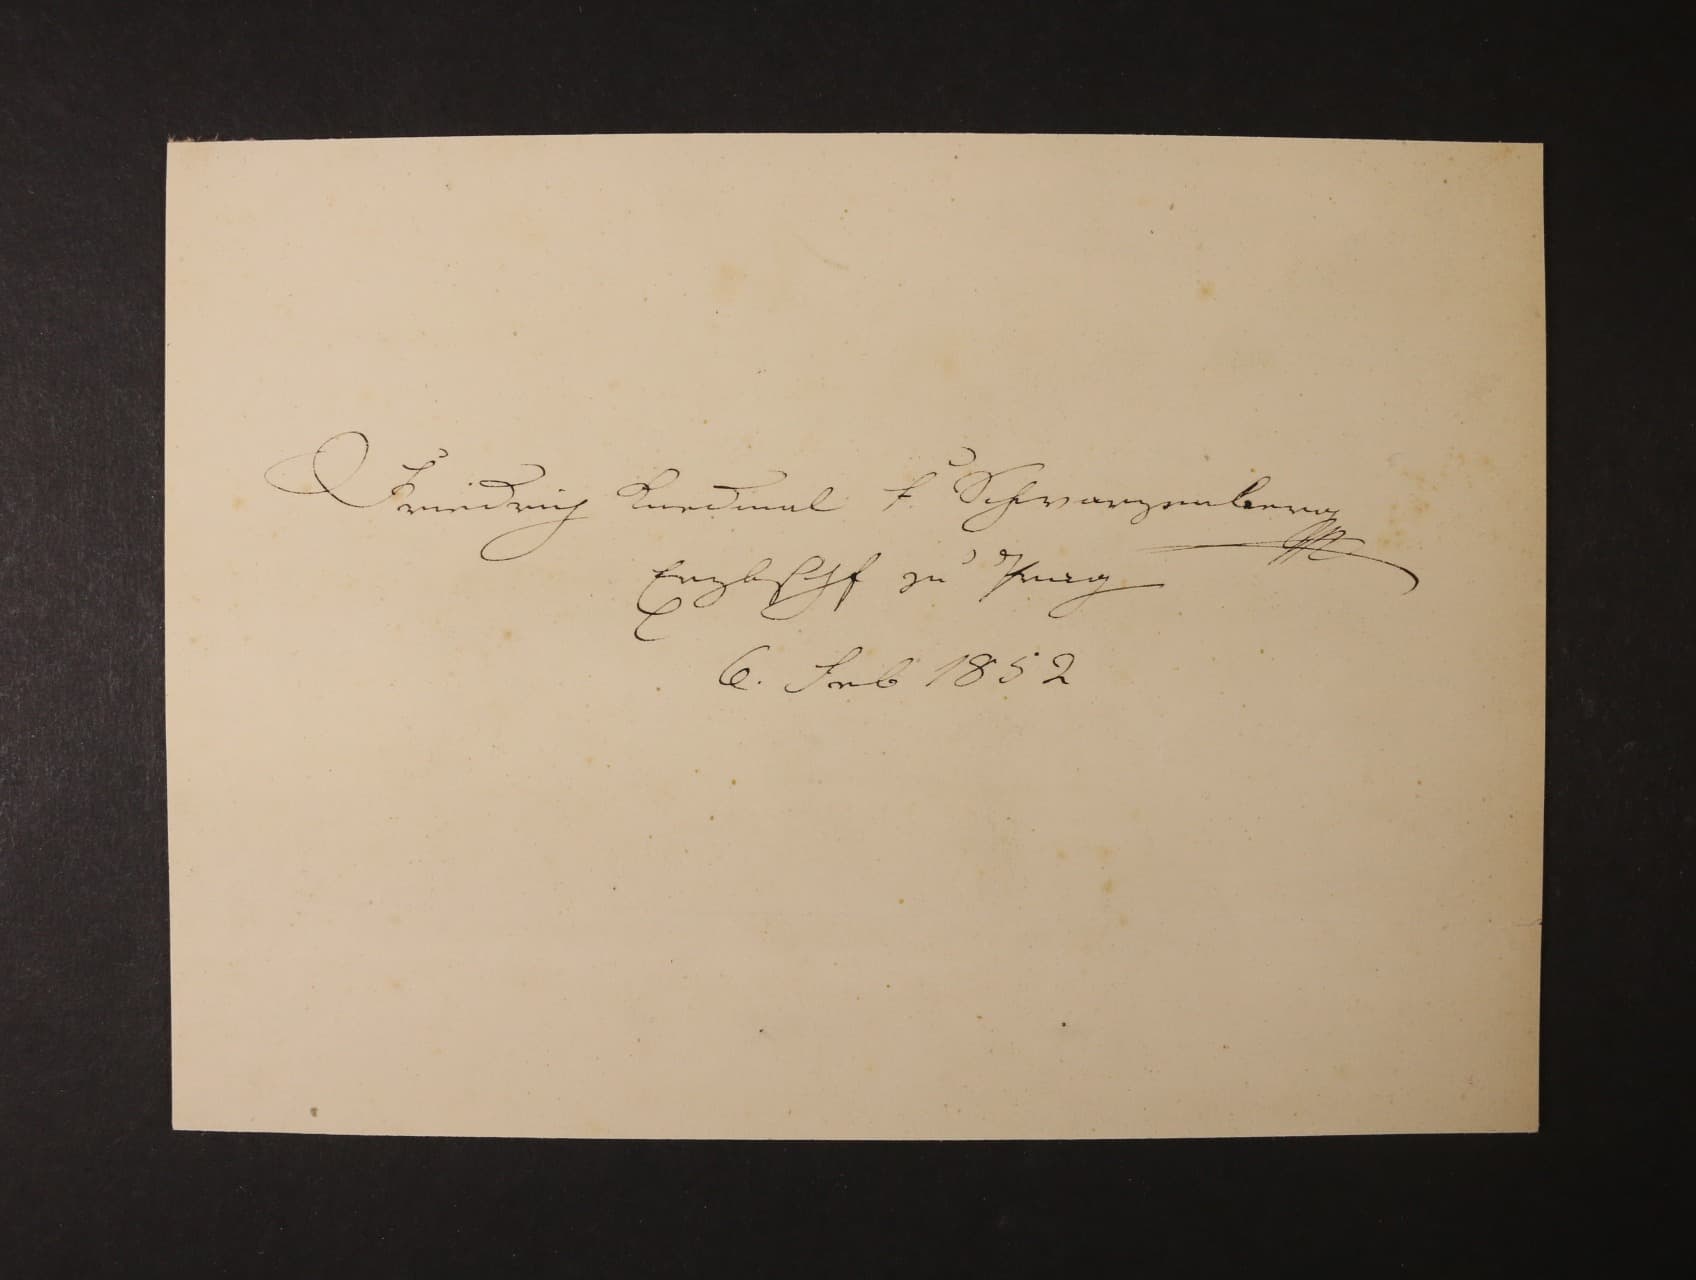 Friedrich Kardinal F. Schwarzenberg
Erzbschf zu Prag
6. Feb 1852